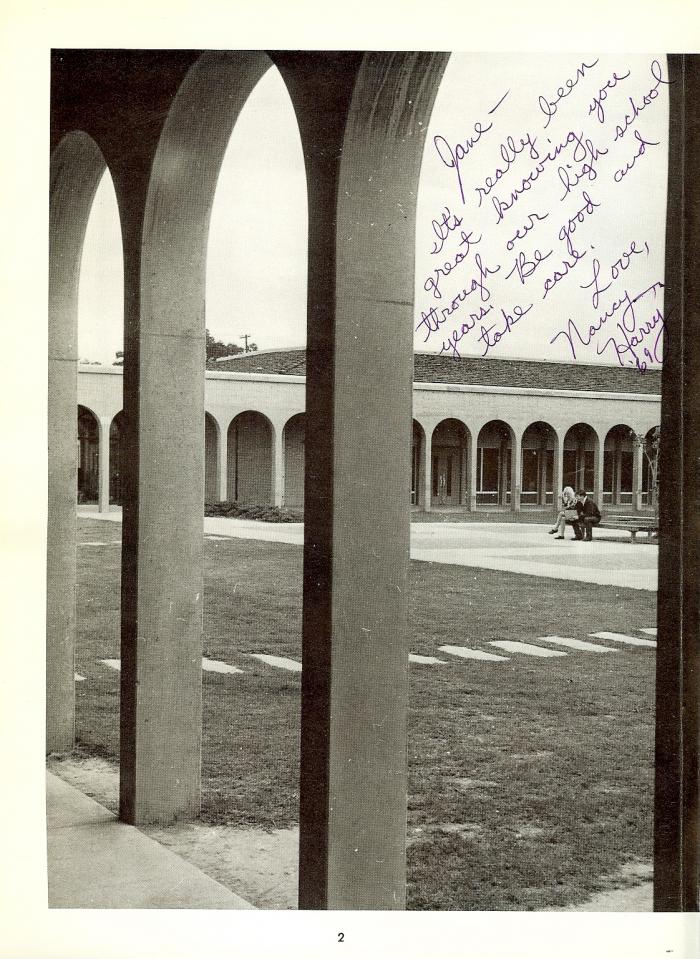 Jane —
It's really been
great knowing you
through our high school
years. Be good and
take care.
Love,
Nancy
Harry
'69
2